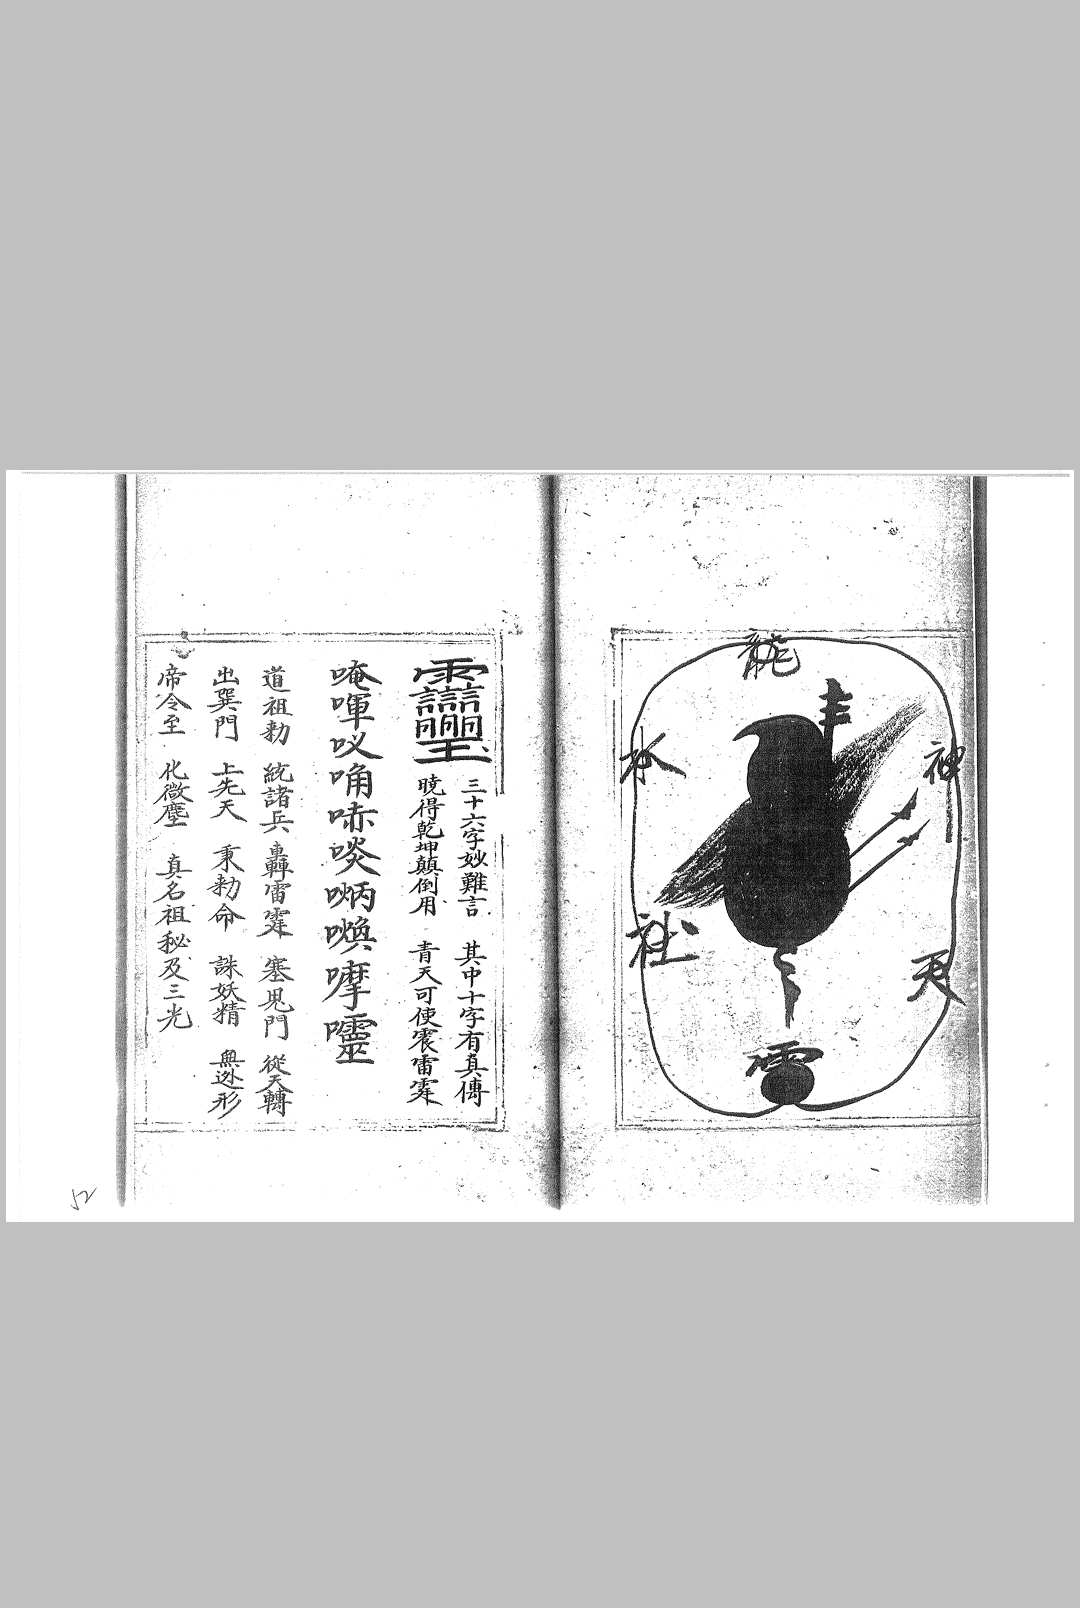 龍
神
水
天
社
雷
三十六字妙難言 其中十字有真傳
曉得乾坤顛倒用 青天可使震雷霆
唵喗㕥唃㖠啖𠰳喚嚤㘋
道祖勅 統諸兵 轟雷霆 塞鬼門 從天轉
出巽門 上先天 秉勅命 誅妖精 無逃形
帝令至 化微塵 真名祖秘及三光
52